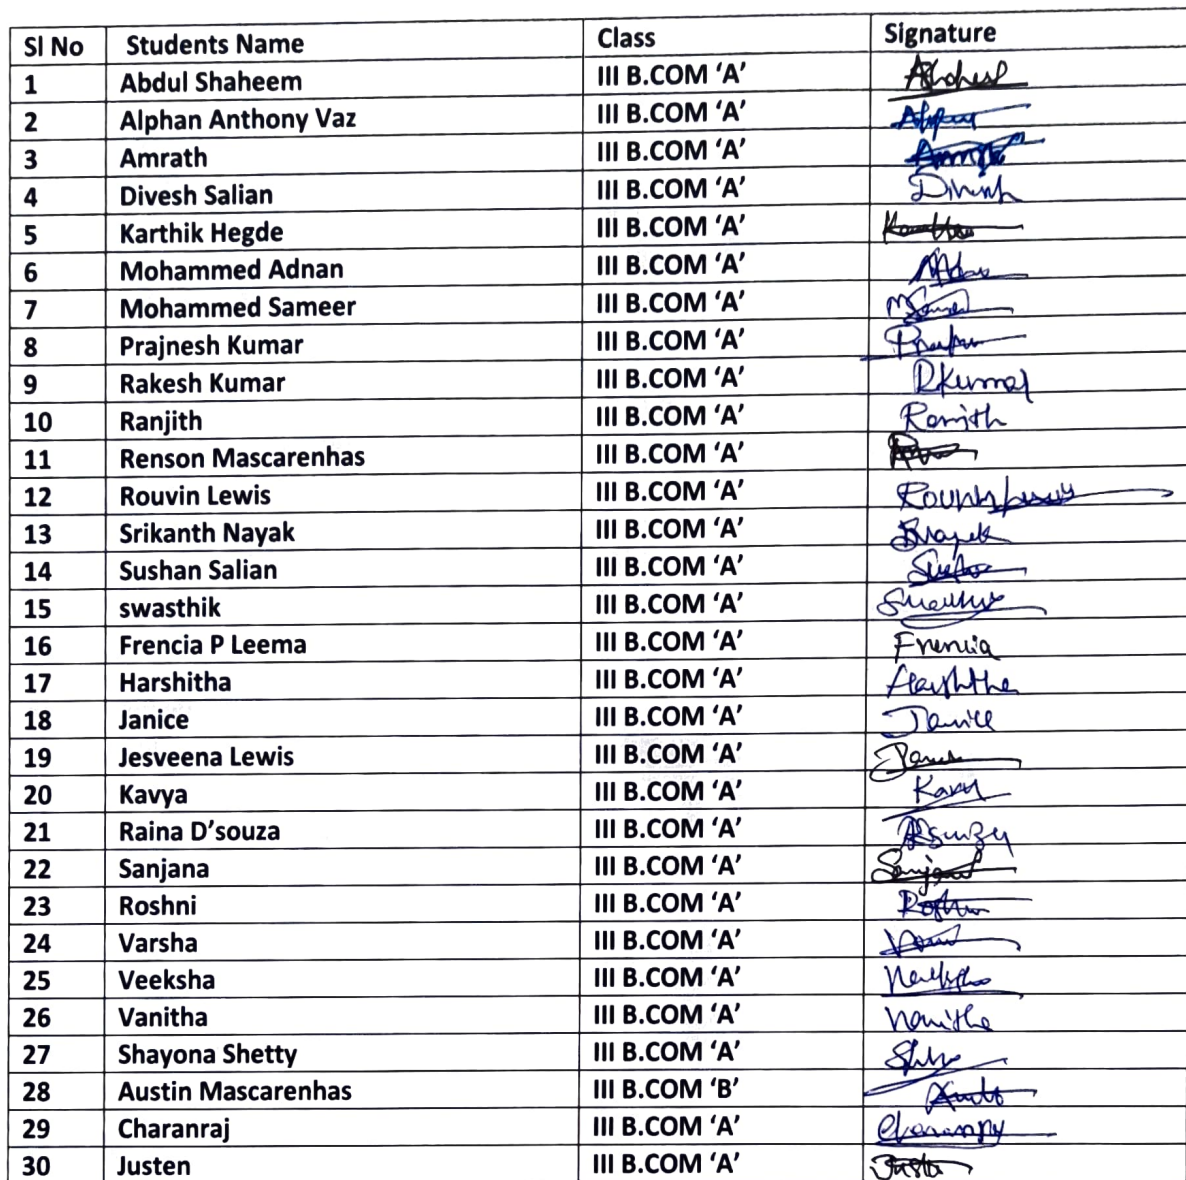 Sl No Students Name Class Signature
1 Abdul Shaheem III B.COM ‘A’
2 Alphan Anthony Vaz III B.COM ‘A’
3 Amrath III B.COM ‘A’
4 Divesh Salian III B.COM ‘A’ Divesh
5 Karthik Hegde III B.COM ‘A’
6 Mohammed Adnan III B.COM ‘A’
7 Mohammed Sameer III B.COM ‘A’
8 Prajnesh Kumar III B.COM ‘A’
9 Rakesh Kumar III B.COM ‘A’ RKumar
10 Ranjith III B.COM ‘A’ Ranjith
11 Renson Mascarenhas III B.COM ‘A’
12 Rouvin Lewis III B.COM ‘A’
13 Srikanth Nayak III B.COM ‘A’
14 Sushan Salian III B.COM ‘A’
15 swasthik III B.COM ‘A’
16 Frencia P Leema III B.COM ‘A’ Frencia
17 Harshitha III B.COM ‘A’ Harshitha
18 Janice III B.COM ‘A’ Janice
19 Jesveena Lewis III B.COM ‘A’
20 Kavya III B.COM ‘A’
21 Raina D’souza III B.COM ‘A’
22 Sanjana III B.COM ‘A’
23 Roshni III B.COM ‘A’
24 Varsha III B.COM ‘A’
25 Veeksha III B.COM ‘A’
26 Vanitha III B.COM ‘A’ Vanitha
27 Shayona Shetty III B.COM ‘A’
28 Austin Mascarenhas III B.COM ‘B’
29 Charanraj III B.COM ‘A’
30 Justen III B.COM ‘A’